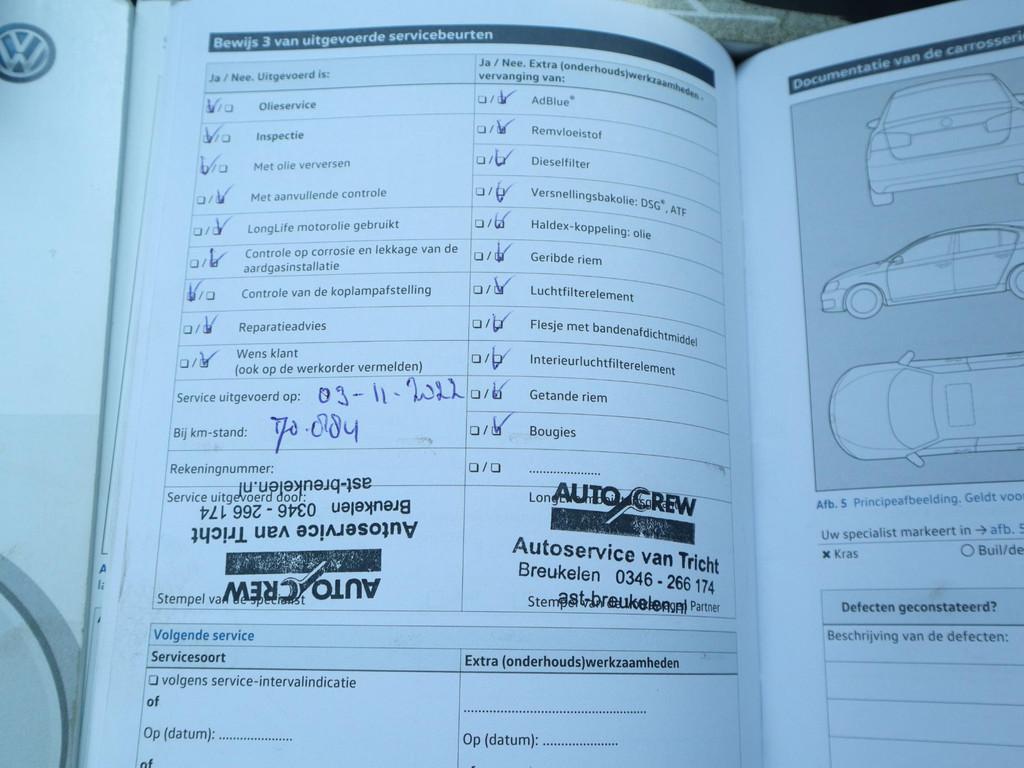 Bewijs 3 van uitgevoerde servicebeurten
Ja / Nee. Uitgevoerd is:
Olieservice
Inspectie
Met olie verversen
Met aanvullende controle
LongLife motorolie gebruikt
Controle op corrosie en lekkage van de
aardgasinstallatie
Controle van de koplampafstelling
Reparatieadvies
Wens klant
(ook op de werkorder vermelden)
Service uitgevoerd op: 03-11-2022
Bij km-stand: 70.884
Rekeningnummer:
Service uitgevoerd door:
AUTO CREW
Autoservice van Tricht
Breukelen 0346 - 266 174
ast-breukelen.nl
Stempel van de specialist
Ja / Nee. Extra (onderhouds)werkzaamheden -
vervanging van:
AdBlue®
Remvloeistof
Dieselfilter
Versnellingsbakolie: DSG®, ATF
Haldex-koppeling: olie
Geribde riem
Luchtfilterelement
Flesje met bandenafdichtmiddel
Interieurluchtfilterelement
Getande riem
Bougies
....................
AUTO CREW
Autoservice van Tricht
Breukelen 0346 - 266 174
ast-breukelen.nl
Stempel van de Partner
Volgende service
Servicesoort
volgens service-intervalindicatie
of
Op (datum): ....................
of
Extra (onderhouds)werkzaamheden
..................................................
Op (datum): ....................
Documentatie van de carrosserie
Afb. 5 Principeafbeelding. Geldt voor
Uw specialist markeert in → afb. 5
× Kras
○ Buil/de
Defecten geconstateerd?
Beschrijving van de defecten: